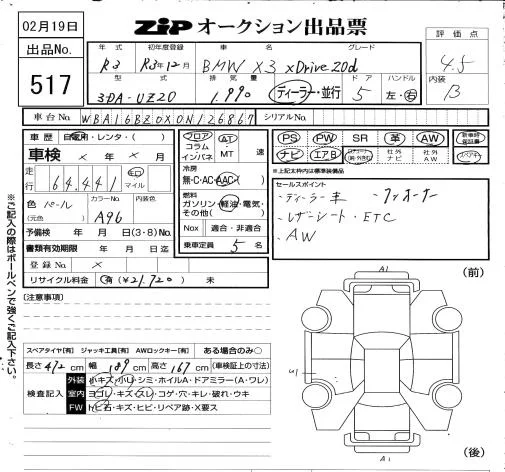 02月19日
ZIP オークション出品票
評価点
出品No.
517
年式 初年度登録 車名 グレード
R3 R3年12月 BMW X3 xDrive20d
4.5
型式 排気量 ドア ハンドル
3DA-UZ20 1.990 ディーラー・並行 5 左・右
内装
B
車台No. WBA16BZ0X0N126867 シリアルNo.
車歴 自家用・レンタ・( )
車検 × 年 × 月
走行 64.441 キロ マイル
色 パール カラーNo. A96 内装色
(元色)
予備検 年 月 日(3・8)No.
書類有効期限 年 月 日迄
登録No. ×
リサイクル料金 有(¥21.720) 未
フロア コラム インパネ AT MT 速
冷房
無・C・AC・AAC・( )
燃料
ガソリン・軽油・電気・その他( )
Nox 適合・非適合
乗車定員 5 名
PS PW SR 革 AW 新車時保証書
ナビ エアB 社外ナビ 社外AW
※上記太枠内は標準装備品
セールスポイント
・ディーラー車 ・ワンオーナー
・レザーシート・ETC
・AW
(注意事項)
スペアタイヤ[有] ジャッキ工具[有] AWロックキー[有] ある場合のみ○
長さ 472 cm 幅 189 cm 高さ 167 cm (車検証上の寸法)
検査記入
外装 小キズ・小リ・シミ・ホイルA・ドアミラー(A・ワレ)
室内 ヨゴレ・キズ・スレ・コゲ・穴・キレ・破れ・ウキ
FW トビ石・キズ・ヒビ・リペア跡・X要ス
※ご記入の際はボールペンで強くご記入下さい。
A1
(前)
A1
(後)